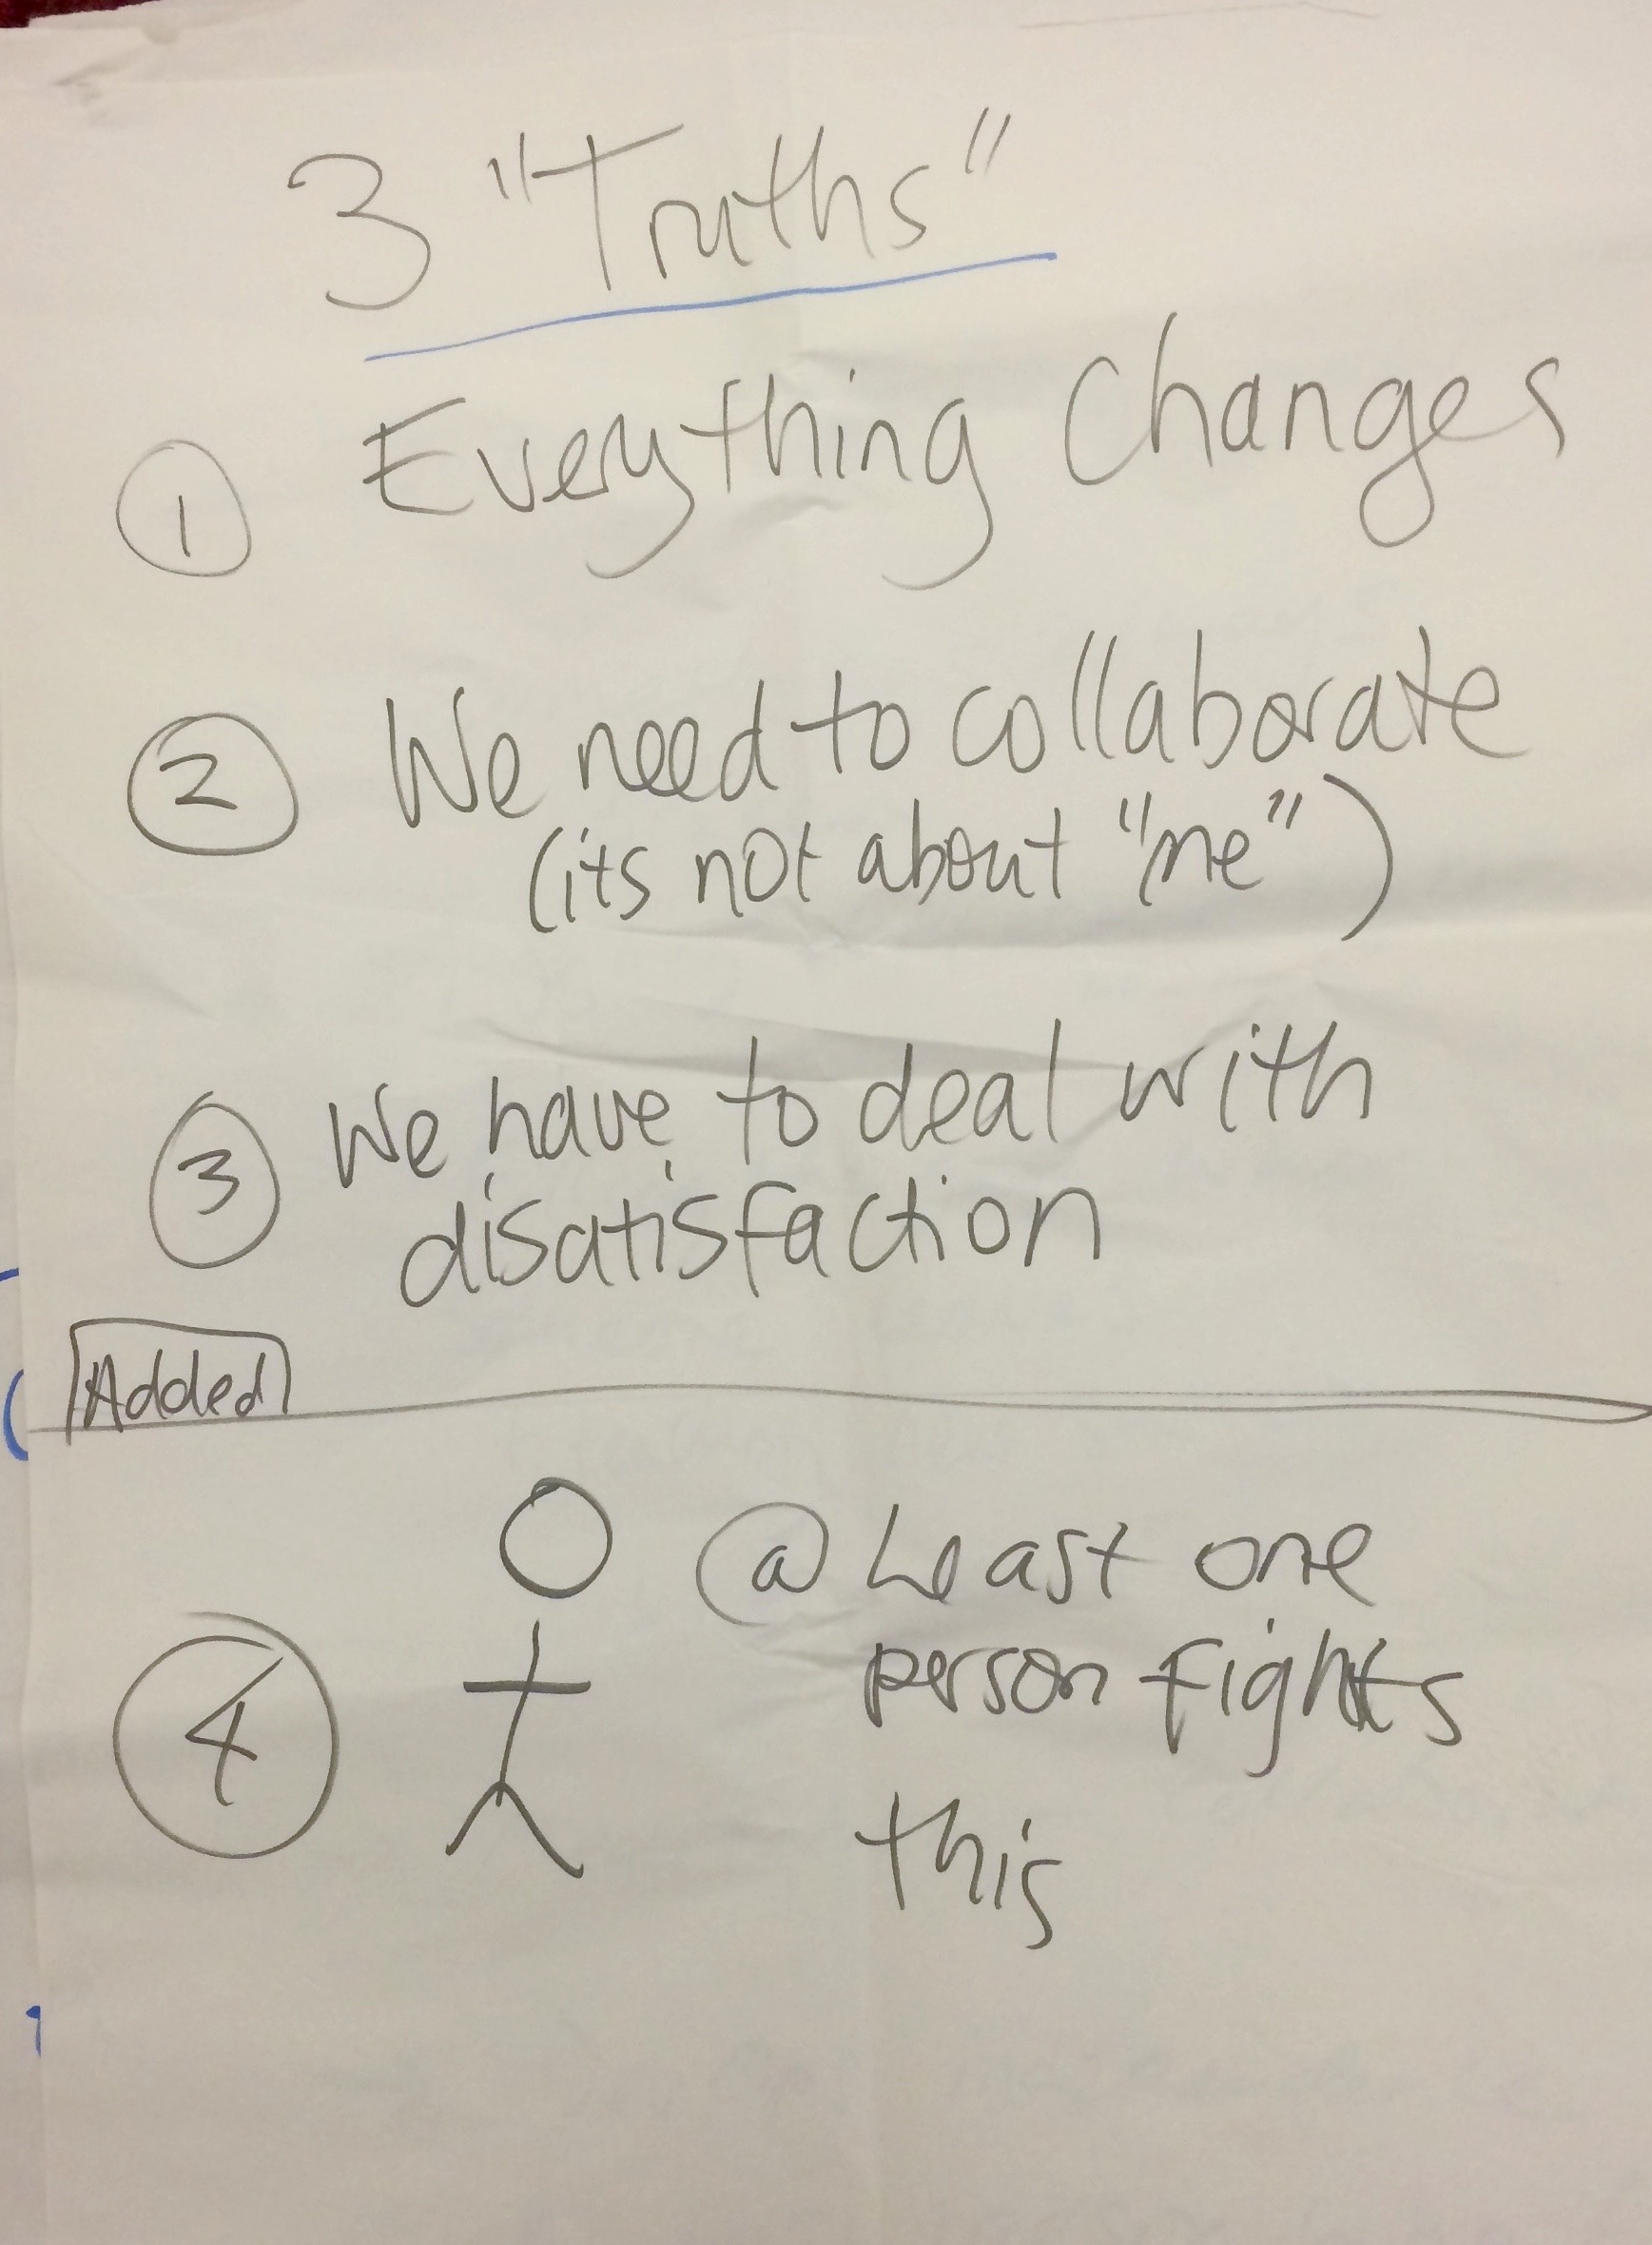 3 "Truths"
① Everything Changes
② We need to collaborate
(its not about "me")
③ We have to deal with
disatisfaction
Added
④ @ Least one
person fights
this